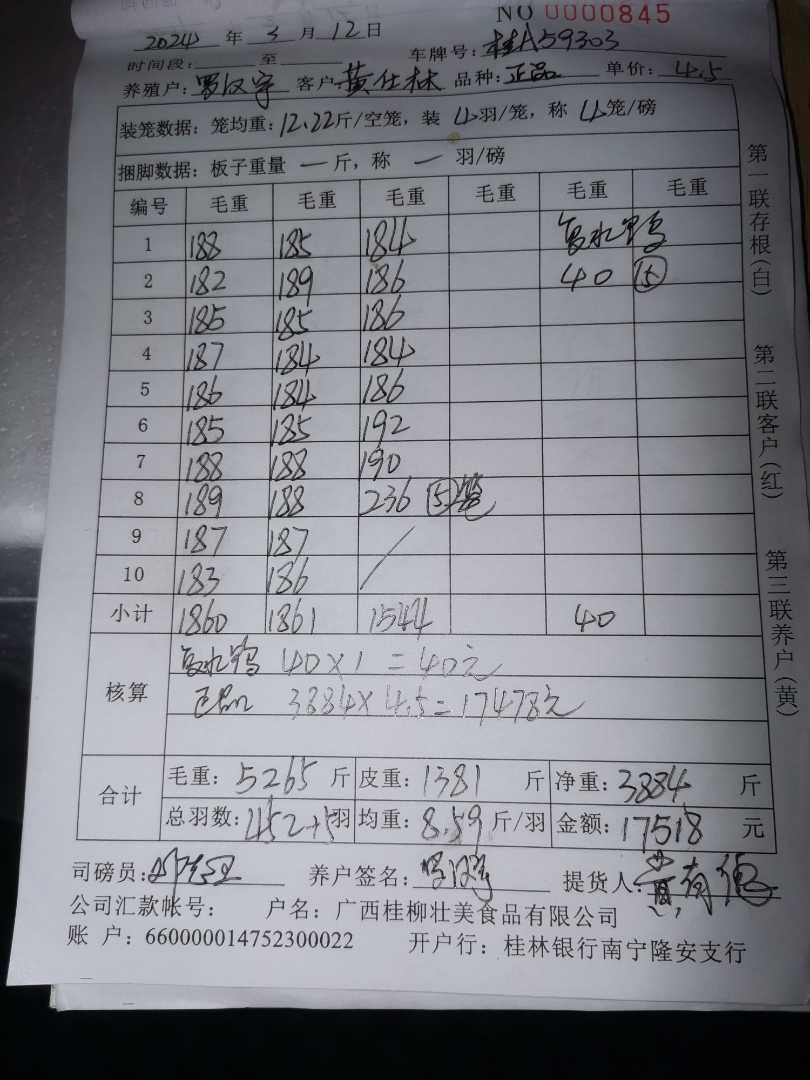 NO 0000845
2024 年 3 月 12 日 车牌号: 桂A59303
时间段: 至
养殖户: 罗汉宇 客户 黄仕林 品种: 正品 单价: 4.5
装笼数据: 笼均重: 12.22斤/空笼, 装 4羽/笼, 称 4笼/磅
捆脚数据: 板子重量 一 斤, 称 一 羽/磅
编号 毛重 毛重 毛重 毛重 毛重 毛重
1 188 185 184
2 182 189 186 40 15
3 185 185 186
4 187 184 184
5 186 184 186
6 185 185 192
7 188 188 190
8 189 188 236 5笼
9 187 187 /
10 183 186
小计 1860 1861 1544 40
核算
40×1=40元
正品 3884×4.5=17478元
合计
毛重: 5265 斤 皮重: 1381 斤 净重: 3884 斤
总羽数: 452+15羽 均重: 8.59 斤/羽 金额: 17518 元
司磅员: 养户签名: 罗汉宇 提货人: 黄有
公司汇款帐号: 户名: 广西桂柳壮美食品有限公司
账 户: 660000014752300022 开户行: 桂林银行南宁隆安支行
第一联存根(白) 第二联客户(红) 第三联养户(黄)